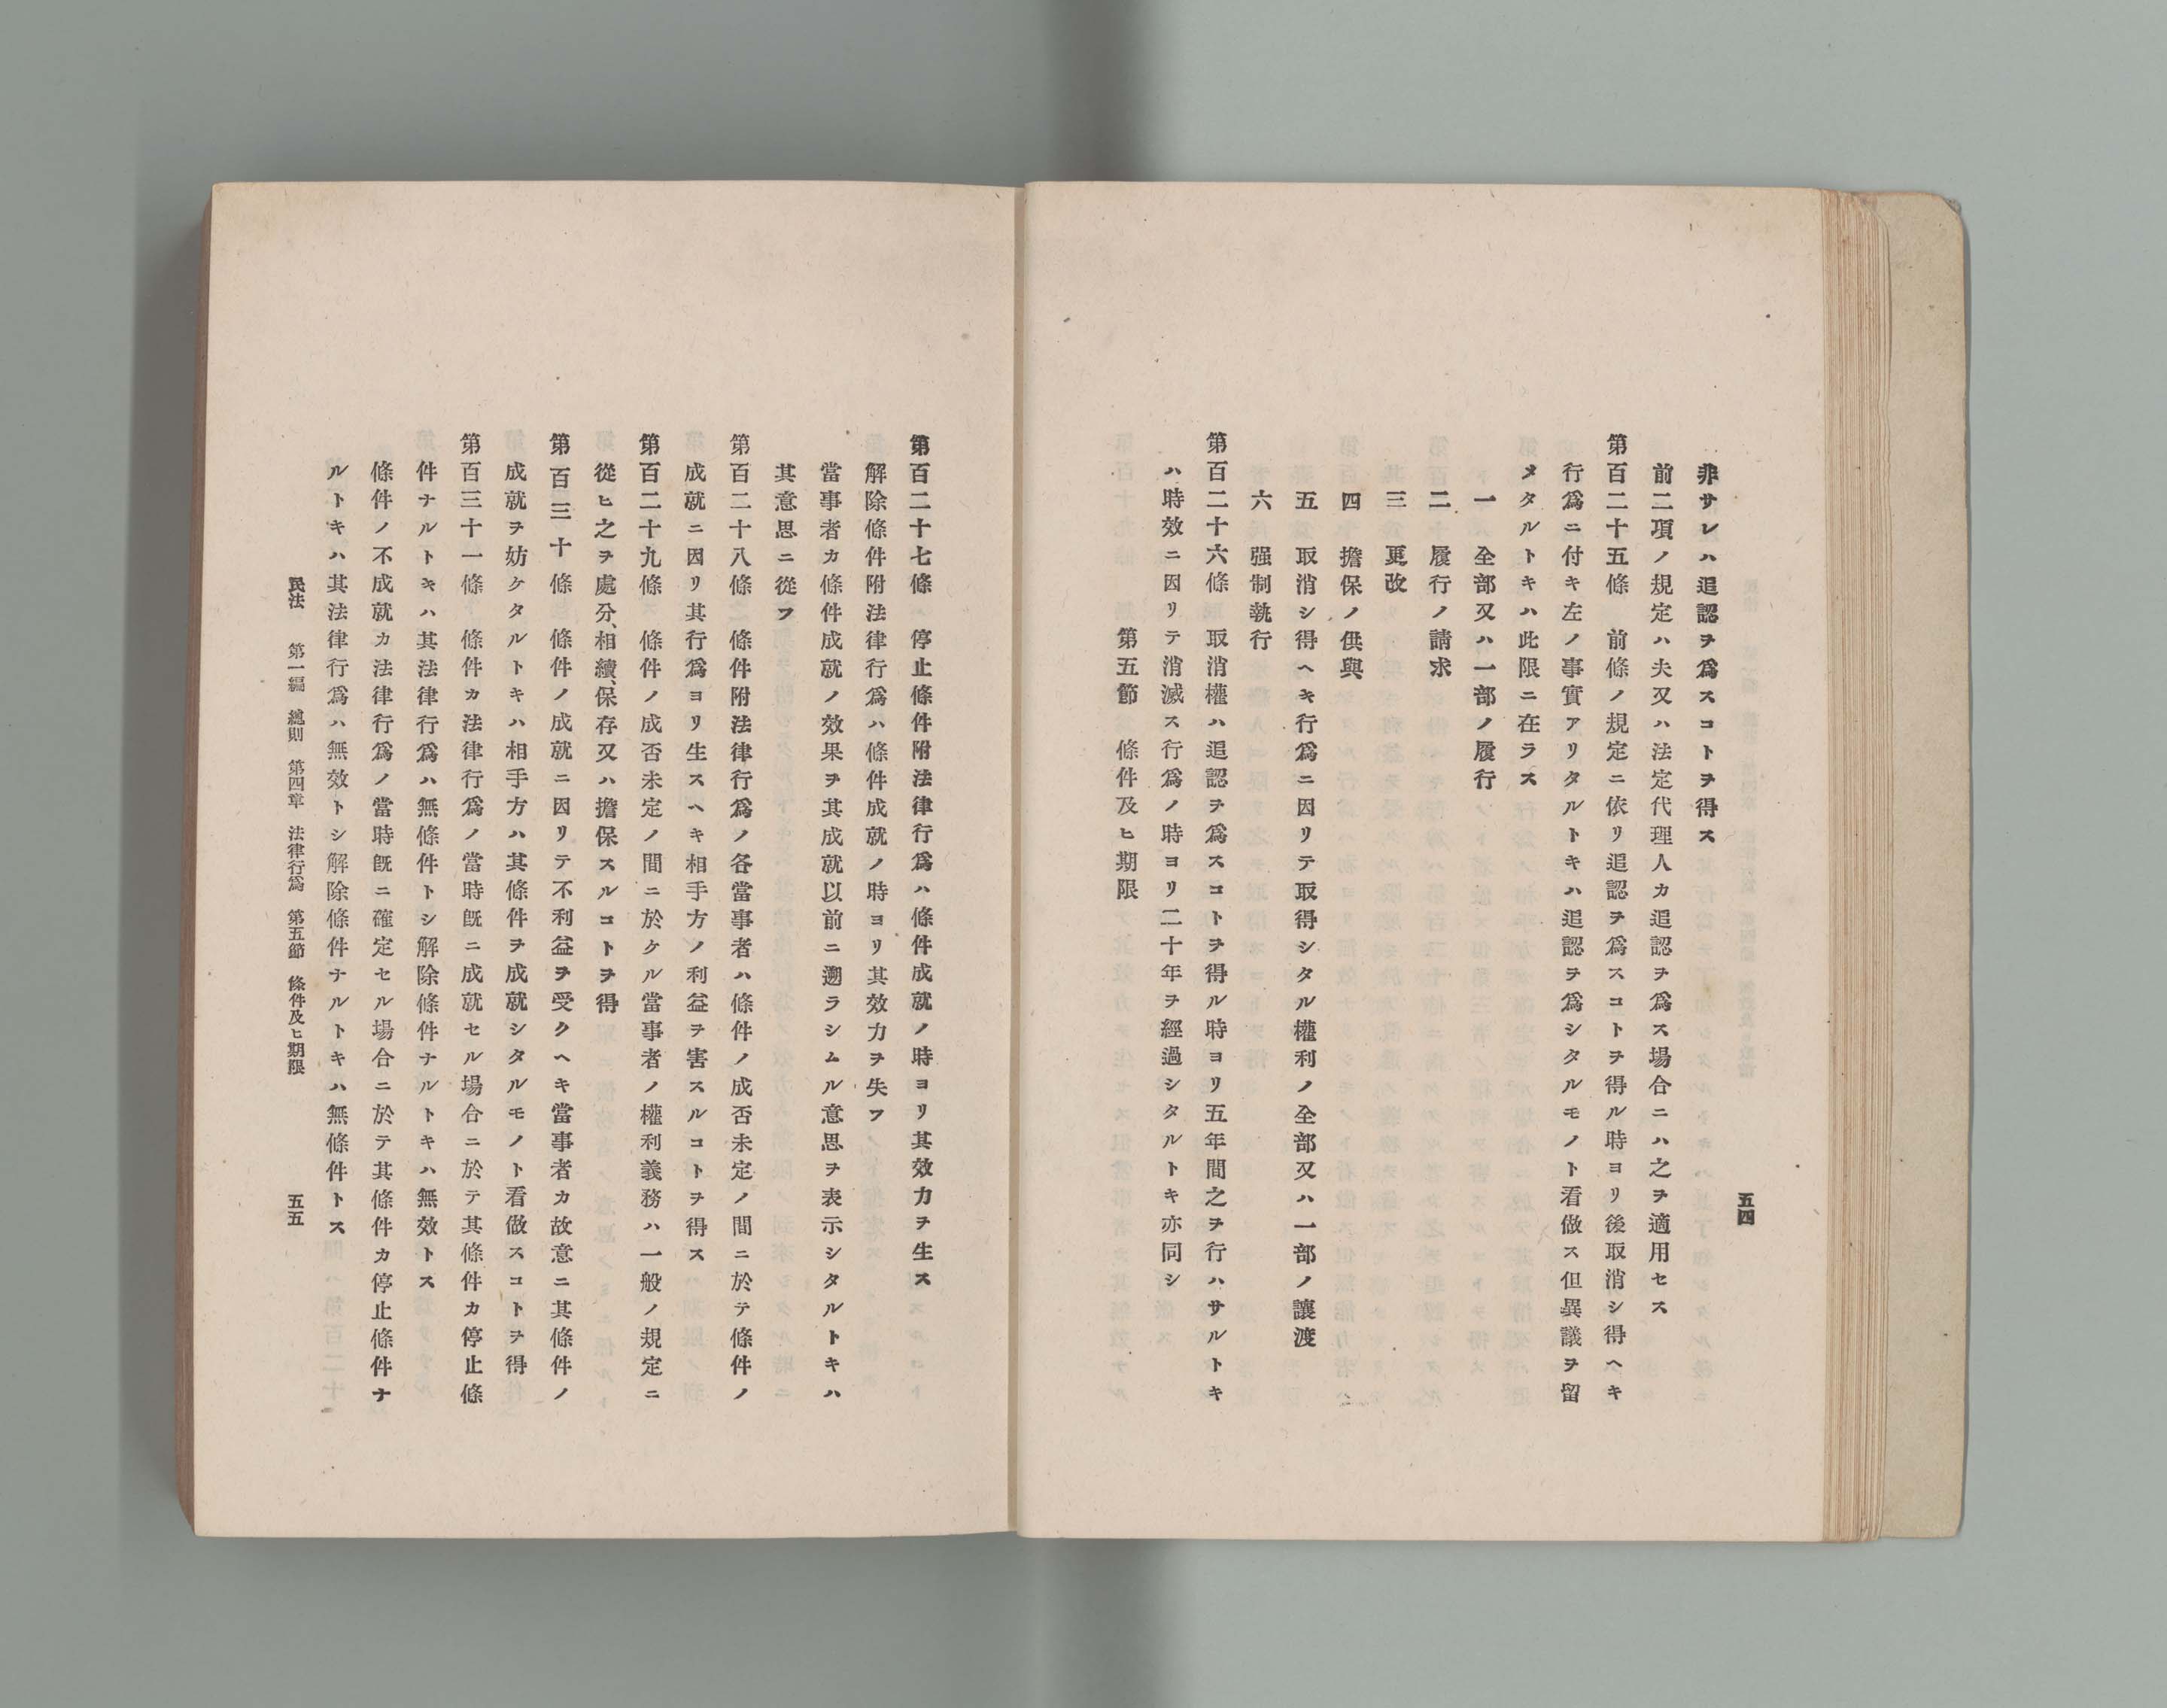 五四
非サレハ追認ヲ爲スコトヲ得ス
前二項ノ規定ハ夫又ハ法定代理人カ追認ヲ爲ス場合ニハ之ヲ適用セス
第百二十五條　前條ノ規定ニ依リ追認ヲ爲スコトヲ得ル時ヨリ後取消シ得ヘキ
行爲ニ付キ左ノ事實アリタルトキハ追認ヲ爲シタルモノト看做ス但異議ヲ留
メタルトキハ此限ニ在ラス
一　全部又ハ一部ノ履行
二　履行ノ請求
三　更改
四　擔保ノ供與
五　取消シ得ヘキ行爲ニ因リテ取得シタル權利ノ全部又ハ一部ノ讓渡
六　强制執行
第百二十六條　取消權ハ追認ヲ爲スコトヲ得ル時ヨリ五年間之ヲ行ハサルトキ
ハ時效ニ因リテ消滅ス行爲ノ時ヨリ二十年ヲ經過シタルトキ亦同シ
第五節　條件及ヒ期限
第百二十七條　停止條件附法律行爲ハ條件成就ノ時ヨリ其效力ヲ生ス
解除條件附法律行爲ハ條件成就ノ時ヨリ其效力ヲ失フ
當事者カ條件成就ノ效果ヲ其成就以前ニ遡ラシムル意思ヲ表示シタルトキハ
其意思ニ從フ
第百二十八條　條件附法律行爲ノ各當事者ハ條件ノ成否未定ノ間ニ於テ條件ノ
成就ニ因リ其行爲ヨリ生スヘキ相手方ノ利益ヲ害スルコトヲ得ス
第百二十九條　條件ノ成否未定ノ間ニ於ケル當事者ノ權利義務ハ一般ノ規定ニ
從ヒ之ヲ處分、相續、保存又ハ擔保スルコトヲ得
第百三十條　條件ノ成就ニ因リテ不利益ヲ受クヘキ當事者カ故意ニ其條件ノ
成就ヲ妨ケタルトキハ相手方ハ其條件ヲ成就シタルモノト看做スコトヲ得
第百三十一條　條件カ法律行爲ノ當時旣ニ成就セル場合ニ於テ其條件カ停止條
件ナルトキハ其法律行爲ハ無條件トシ解除條件ナルトキハ無效トス
條件ノ不成就カ法律行爲ノ當時旣ニ確定セル場合ニ於テ其條件カ停止條件ナ
ルトキハ其法律行爲ハ無效トシ解除條件ナルトキハ無條件トス
民法　第一編　總則　第四章　法律行爲　第五節　條件及ヒ期限　五五